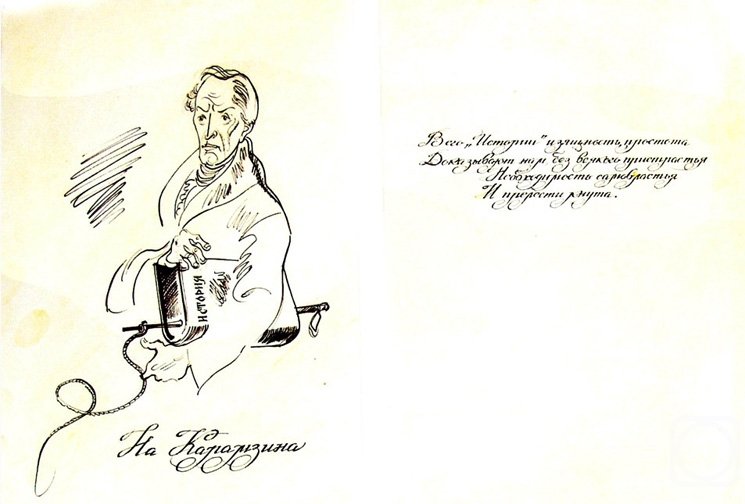 ИСТОРИЯ
На Карамзина
В его „Истории" изящность, простота
Доказывают нам без всякого пристрастья
Необходимость самовластья
И прелести кнута.